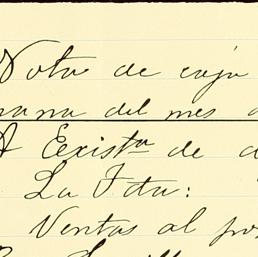 Nota de caja
mana del mes
A Exist.ª de
La Fda:
Ventas al por